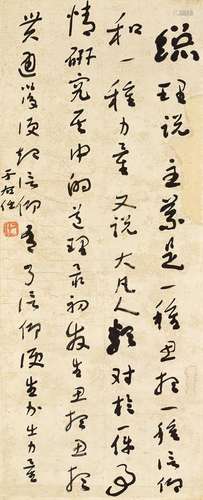 總理說主義是一種思想一種信仰
和一種力量又說大凡人類對於一件事
情研究其中的道理最初發生思想思想
貫通後便起信仰有了信仰便生出力量
于右任